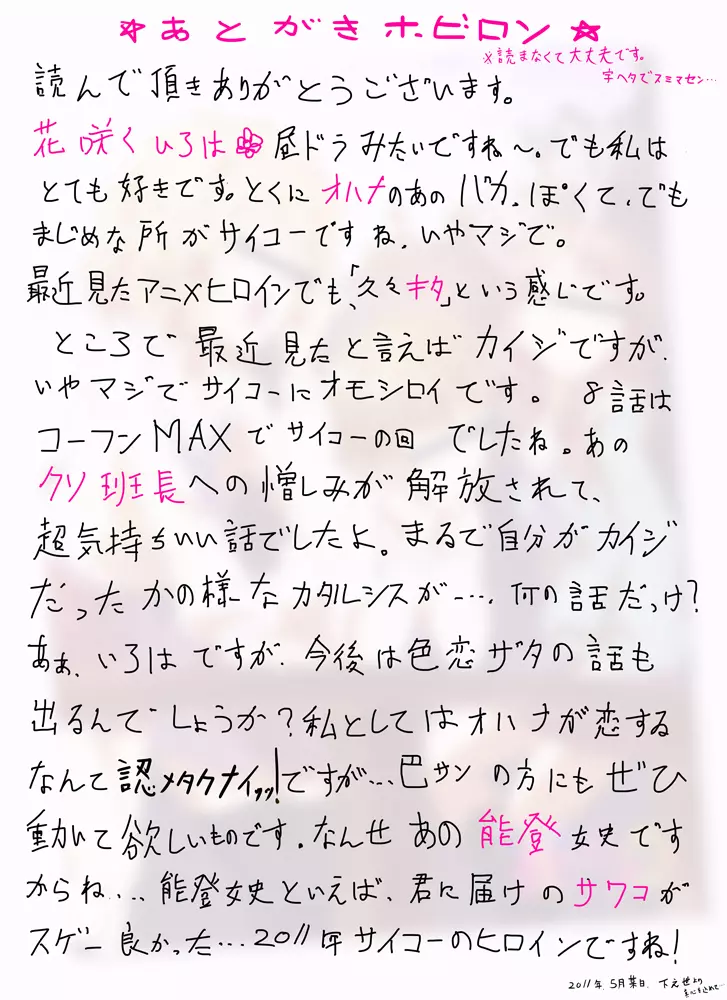 ☆あとがきホビロン☆
※読まなくて大丈夫です。
字ヘタでスミマセン…
読んで頂きありがとうございます。
花咲くいろは 昼ドラみたいですね〜。でも私は
とても好きです。とくにオハナのあのバカっぽくて、でも
まじめな所がサイコーですね、いやマジで。
最近見たアニメヒロインでも、「久々キタ」という感じです。
ところで最近見たと言えばカイジですが、
いやマジでサイコーにオモシロイです。 8話は
コーフンMAXでサイコーの回でしたね。あの
クソ班長への憎しみが解放されて、
超気持ちいい話でしたよ。まるで自分がカイジ
だったかの様なカタルシスが…、何の話だっけ?
あぁ、いろはですが、今後は色恋ザタの話も
出るんでしょうか?私としてはオハナが恋する
なんて認メタクナイッッ!ですが…巴サンの方にもぜひ
動いて欲しいものです。なんせあの能登女史です
からね…、能登女史といえば、君に届けのサワコが
スゲー良かった…2011年サイコーのヒロインですね!
2011年.5月某日.